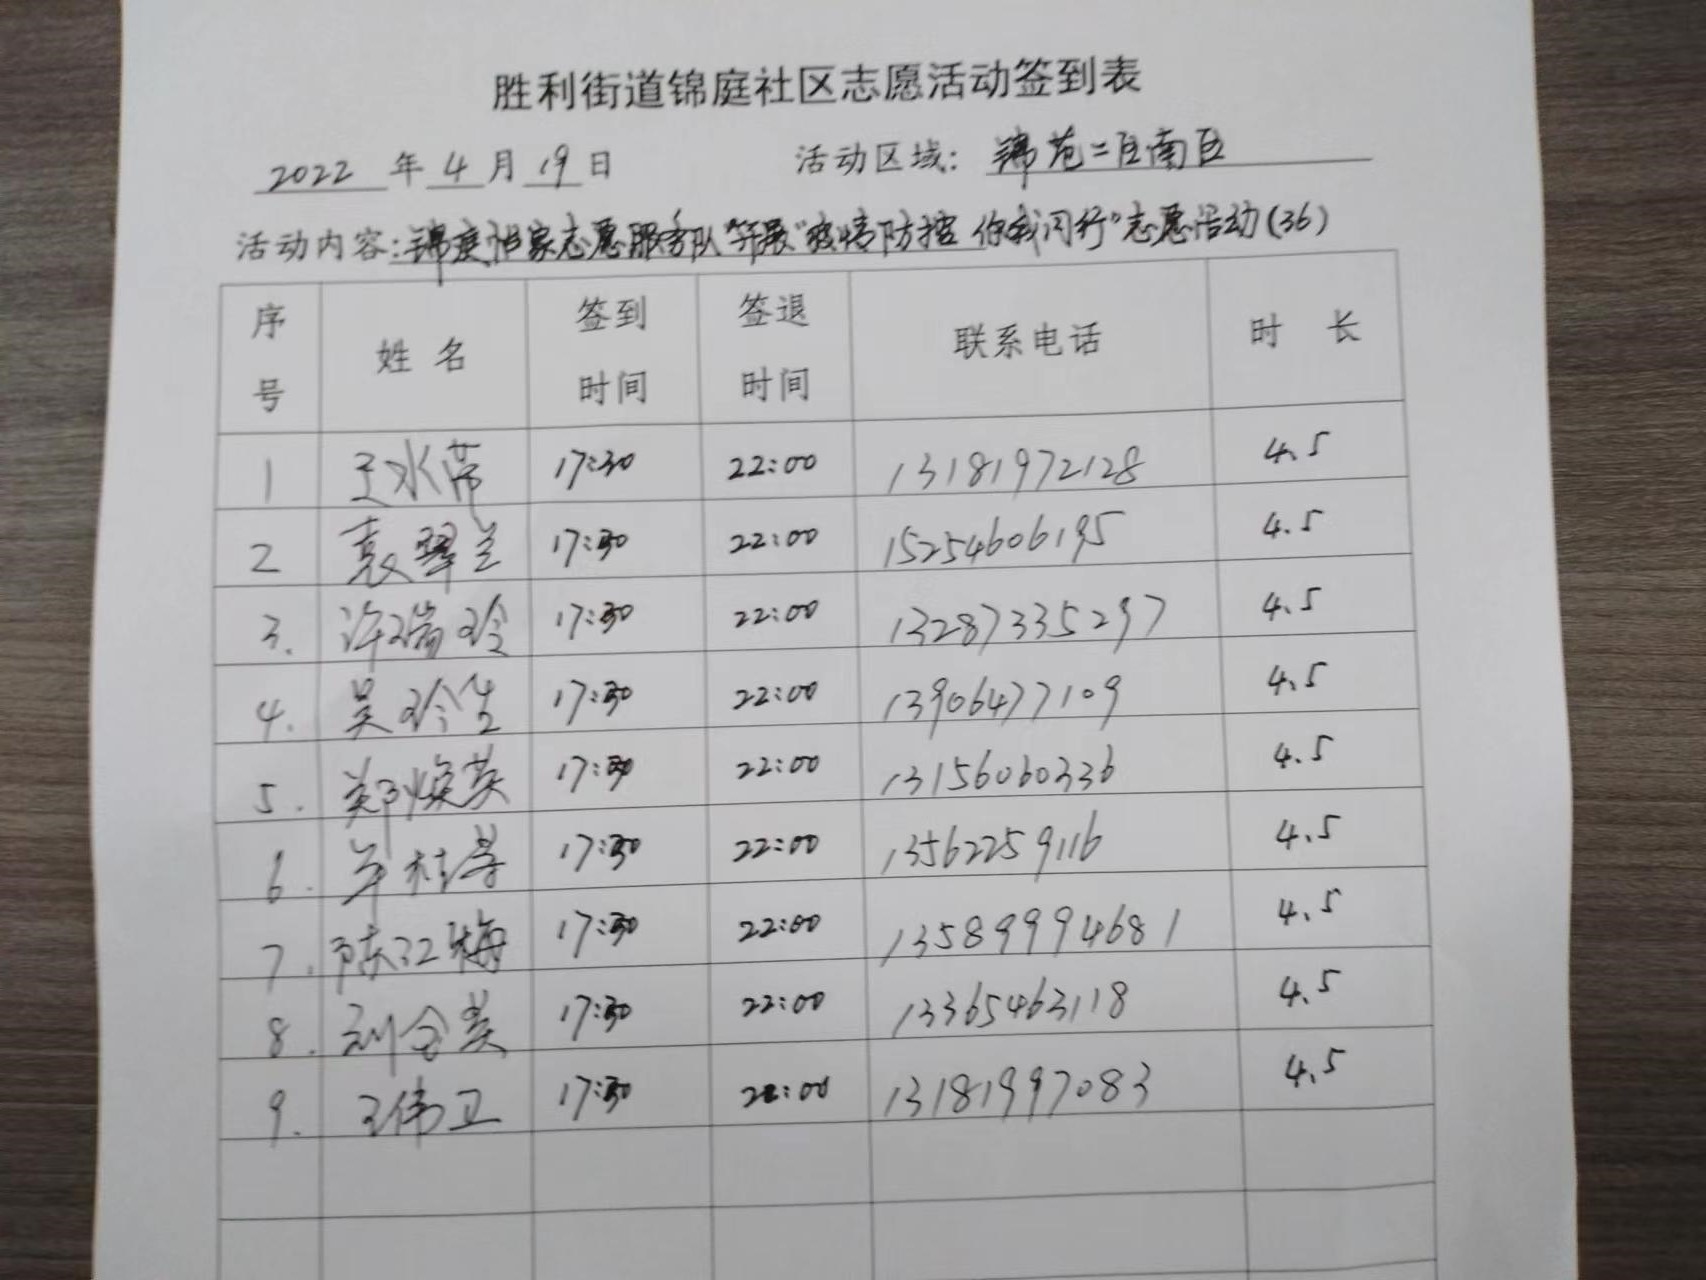 胜利街道锦庭社区志愿活动签到表
2022 年 4 月 19 日 活动区域: 锦苑二区南区
活动内容:锦庭 家志愿服务队"开展"疫情防控 你我同行"志愿活动(36)
序号 姓名 签到时间 签退时间 联系电话 时 长
1 王水芹 17:30 22:00 13181972128 4.5
2 袁翠兰 17:30 22:00 15254606195 4.5
3. 许瑞玲 17:30 22:00 13287335297 4.5
4. 吴玲生 17:30 22:00 13906477109 4.5
5. 郑焕英 17:30 22:00 13156060336 4.5
6. 桂 17:30 22:00 13562259116 4.5
7. 陈江梅 17:30 22:00 13589994681 4.5
8. 刘合英 17:30 22:00 13365463118 4.5
9. 王伟卫 17:30 22:00 13181997083 4.5